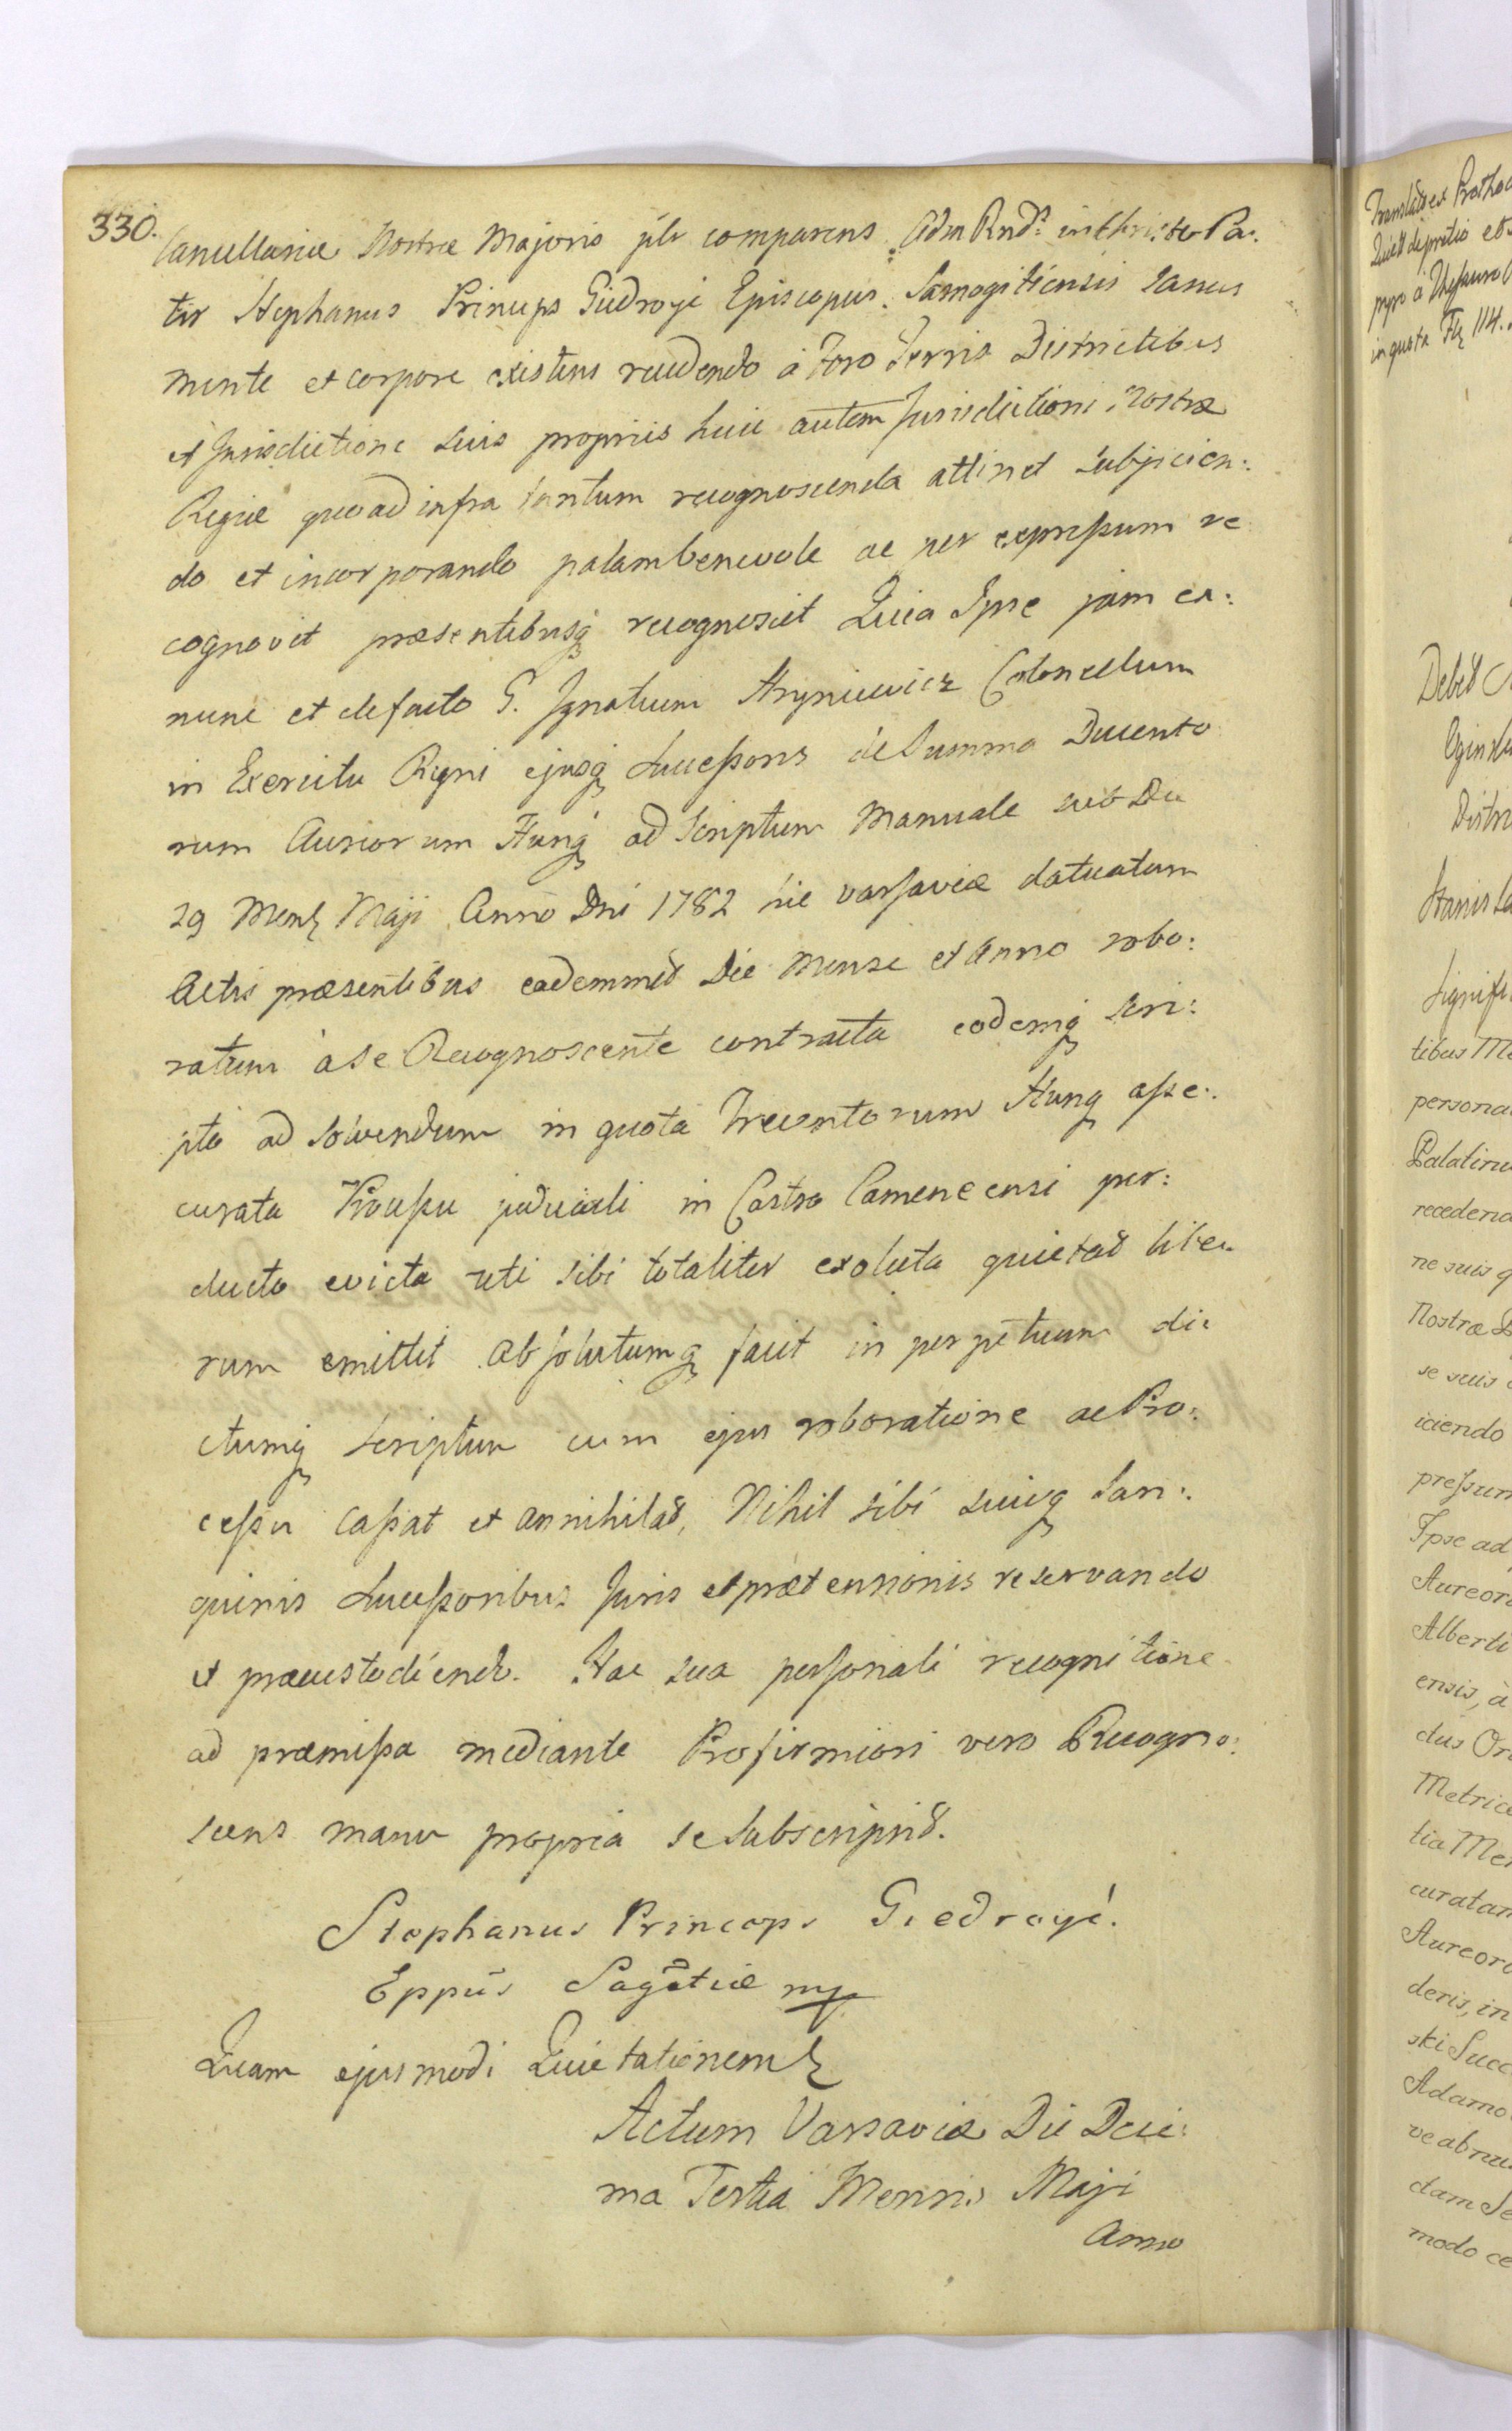 330.
Cancellariæ Nostræ Majoris plr comparens Adm Rnd° in Christo Pa:
ter Stephanus Princeps Giedroyc Episcopus Samogitiensis Sanus
mente et corpore existens recedendo à Foro Terris Districtibus
et Jurisdictione suis propriis huic autem Jurisdictioni Nostræ
Regiæ quoad infra tantum recognoscenda attinet subjicien:
do et incorporando palam benevole ac per expressum re
cognovit præsentibusq recognoscit Quia Ipse jam ex:
nunc et de facto G. Ignatium Hryniewicz Colonellum
in Exercitu Regni ejusq Successores de Summa Ducento
rum Aureorum Hung ad Scriptum Manuale sub Die
29 Mens Maji Anno Dni 1782 hic Varsaviæ datuatum
Actis præsentibus eademmet Die Mense et Anno robo:
ratum à se Recognoscente contracta eodemq scri:
pto ad solvendum in quota Trecentorum Hung asse:
curata Processu judiciali in Castro Camenecensi per:
ducto evicta uti sibi totaliter exoluta quietat libe:
rum emittit absolutumq facit in perpetuum di:
ctumq Scriptum cum ejus roboratione ac Pro:
cessu cassat et annihilat, Nihil sibi suisq San:
guinis Successoribus Juris et prætensionis reservando
et præcustodiendo. Hac sua personali recognitione
ad præmissa mediante Pro firmiori vero Recogno:
scens manu propria se subscripsit.
Stephanus Princeps Giedroyć.
Eppus Sagötiæ mp
Quam ejusmodi Quietationem
Actum Varsaviæ Die Deci:
ma Tertia Mensis Maji
Anno
Debet
Stanis
tibus
persona
Palatinu
recedend
ne suis q
Nostræ
se suis
iciendo
pressum
Ipse ad
Aureor
Alberti
ensis, à
dus Or
Metrice
tia Me
curatam
Aureor
deris, in
ski Succ
Adamo
ve ab nu
dam Se
modo ce